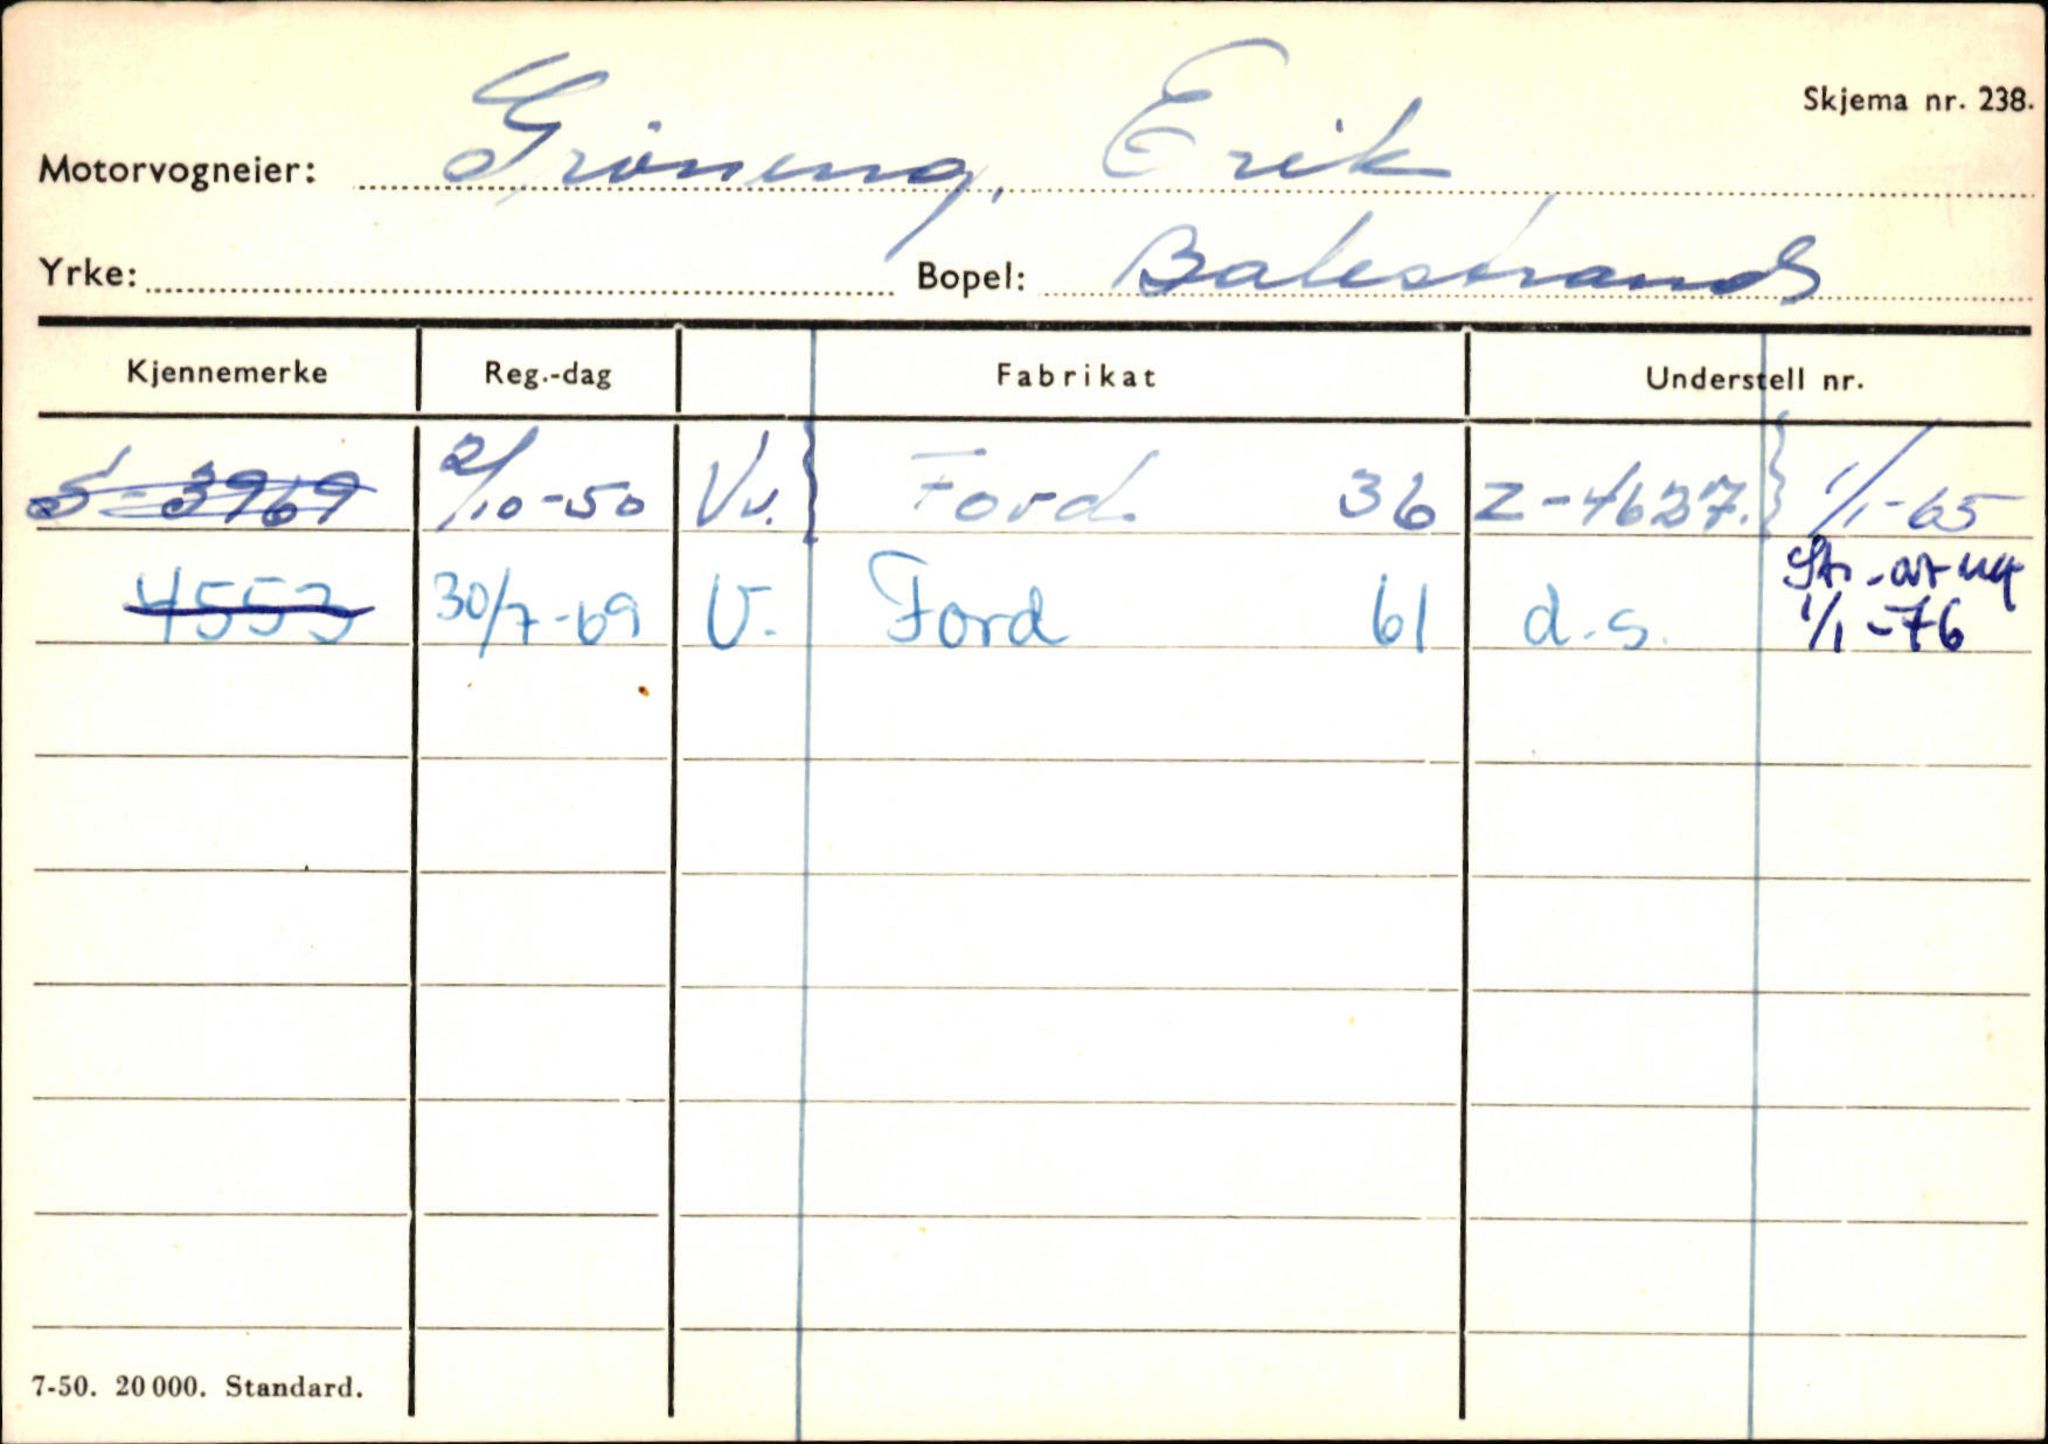 Skjema nr. 238.
Motorvogneier: Gröning, Erik
Yrke: Bopel: Balestrand
Kjennemerke Reg.-dag Fabrikat Understell nr.
S-3969 2/10-50 Vv. } Ford 36 Z-4627. } 1/1-65
4553 30/7-69 V. Ford 61 d.s. 1/1-76
7-50. 20 000. Standard.